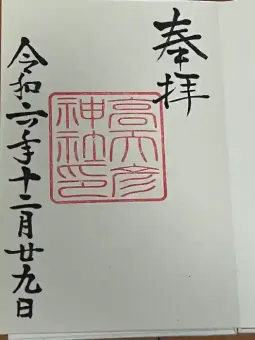 奉拝
高天彦
神社印
令和六年十二月廿九日